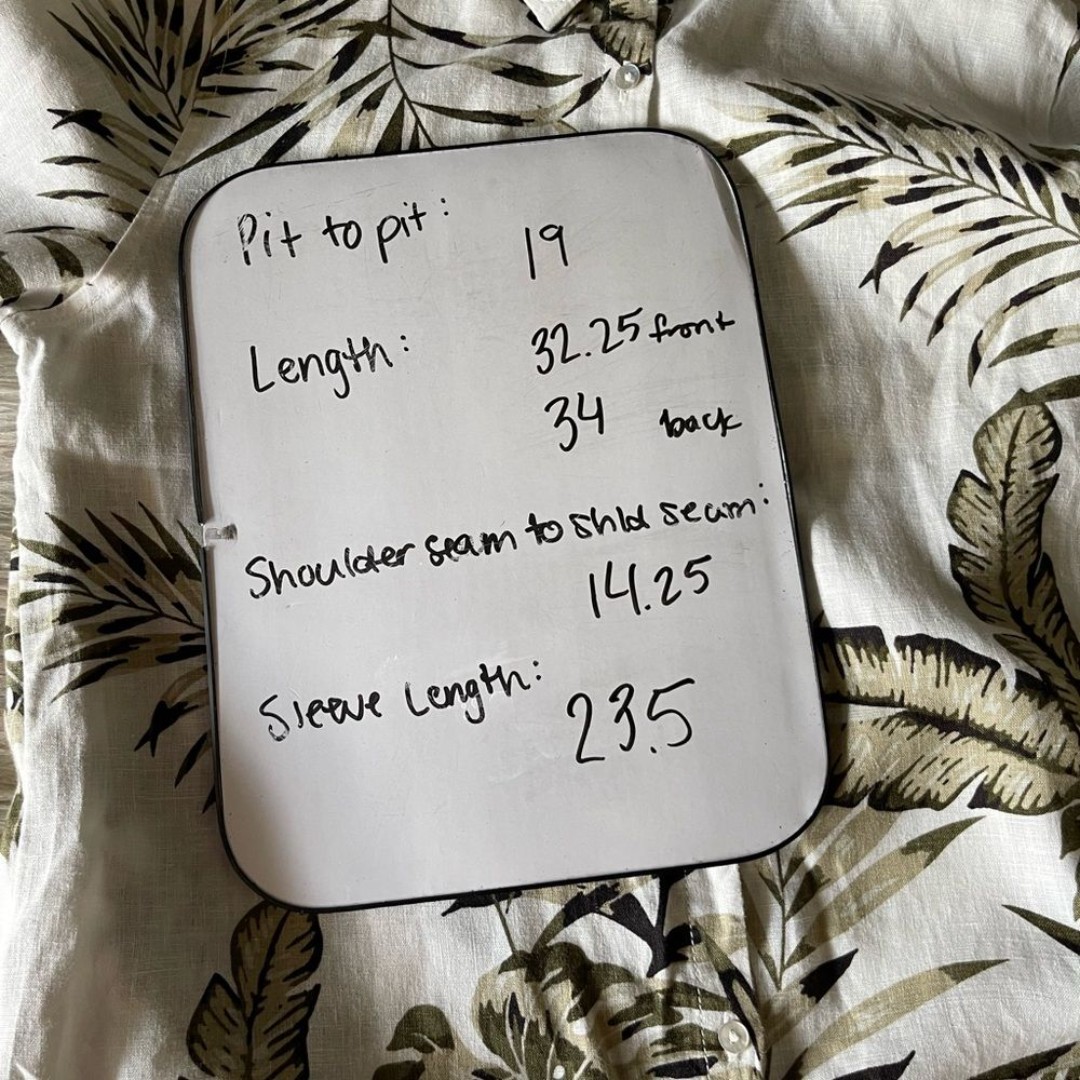 Pit to pit: 19
Length: 32.25 front
34 back
Shoulder seam to shld seam:
14.25
Sleeve Length: 23.5